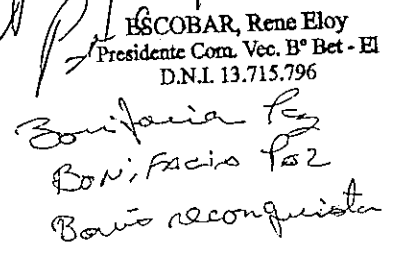 ESCOBAR, Rene Eloy
Presidente Com. Vec. Bº Bet - El
D.N.I. 13.715.796
Bonifacia Paz
BONiFACio Paz
Barrio reconquista